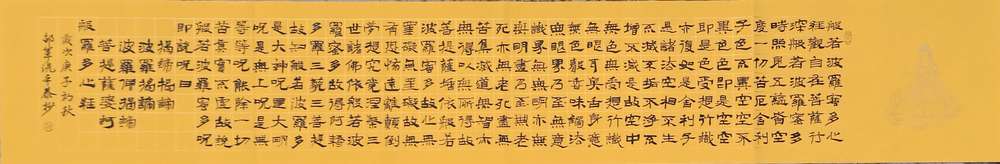 般若波羅蜜多心
經觀自在菩薩行
深般若波羅蜜多
時照見五蘊皆空
度一切苦厄舍利
子色不異空空不
異色色即是空空
即是色受想行識
亦復如是舍利子
是諸法空相不生
不滅不垢不淨不
增不減是故空中
無色無受想行識
無眼耳鼻舌身意
無色聲香味觸法
無眼界乃至無意
識界無無明亦無
無明盡乃至無老
死亦無老死盡無
苦集滅道無智亦
無得以無所得故
菩提薩埵依般若
波羅蜜多故心無
罣礙無罣礙故無
有恐怖遠離顛倒
夢想究竟涅槃三
世諸佛依般若波
羅蜜多故得阿耨
多羅三藐三菩提
故知般若波羅蜜多
是大神呪是大明
呪是無上呪是無
等等呪能除一切
苦真實不虛故說
般若波羅蜜多呪
即說呪曰
揭諦揭諦
波羅揭諦
波羅僧揭諦
菩提薩婆訶
般羅多心經
歲次庚子初秋